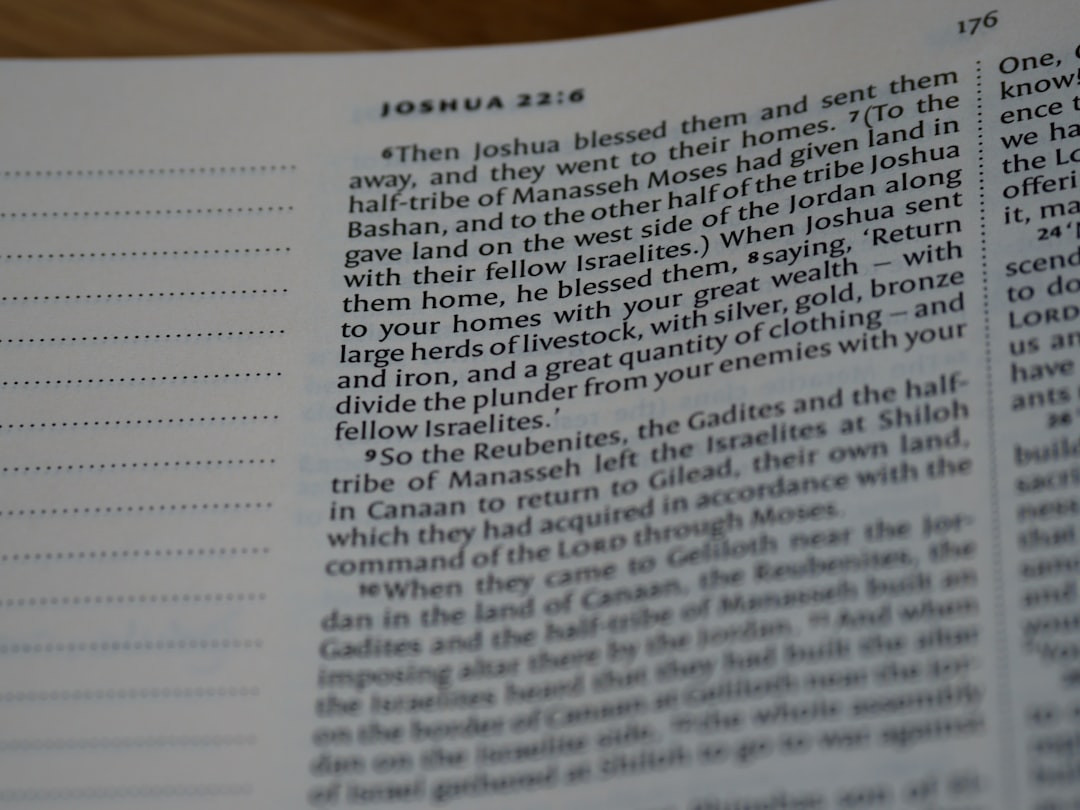 176
JOSHUA 22:6
6Then Joshua blessed them and sent them
away, and they went to their homes. 7(To the
half-tribe of Manasseh Moses had given land in
Bashan, and to the other half of the tribe Joshua
gave land on the west side of the Jordan along
with their fellow Israelites.) When Joshua sent
them home, he blessed them, 8saying, ‘Return
to your homes with your great wealth – with
large herds of livestock, with silver, gold, bronze
and iron, and a great quantity of clothing – and
divide the plunder from your enemies with your
fellow Israelites.’
9So the Reubenites, the Gadites and the half-
tribe of Manasseh left the Israelites at Shiloh
in Canaan to return to Gilead, their own land,
which they had acquired in accordance with the
command of the LORD through Moses.
10When they came to Geliloth near the Jor-
dan in the land of Canaan, the Reubenites, the
Gadites and the half-tribe of Manasseh built an
imposing altar there by the Jordan. 11And when
the Israelites heard that they had built the altar
on the border of Canaan at Geliloth near the Jor-
dan on the Israelite side, 12the whole assembly
of Israel gathered at Shiloh to go to war against
One,
know!
ence
we ha
the Lo
offeri
it, ma
24‘
scend
to do
LORD
us an
have
ants
26
build
sacri